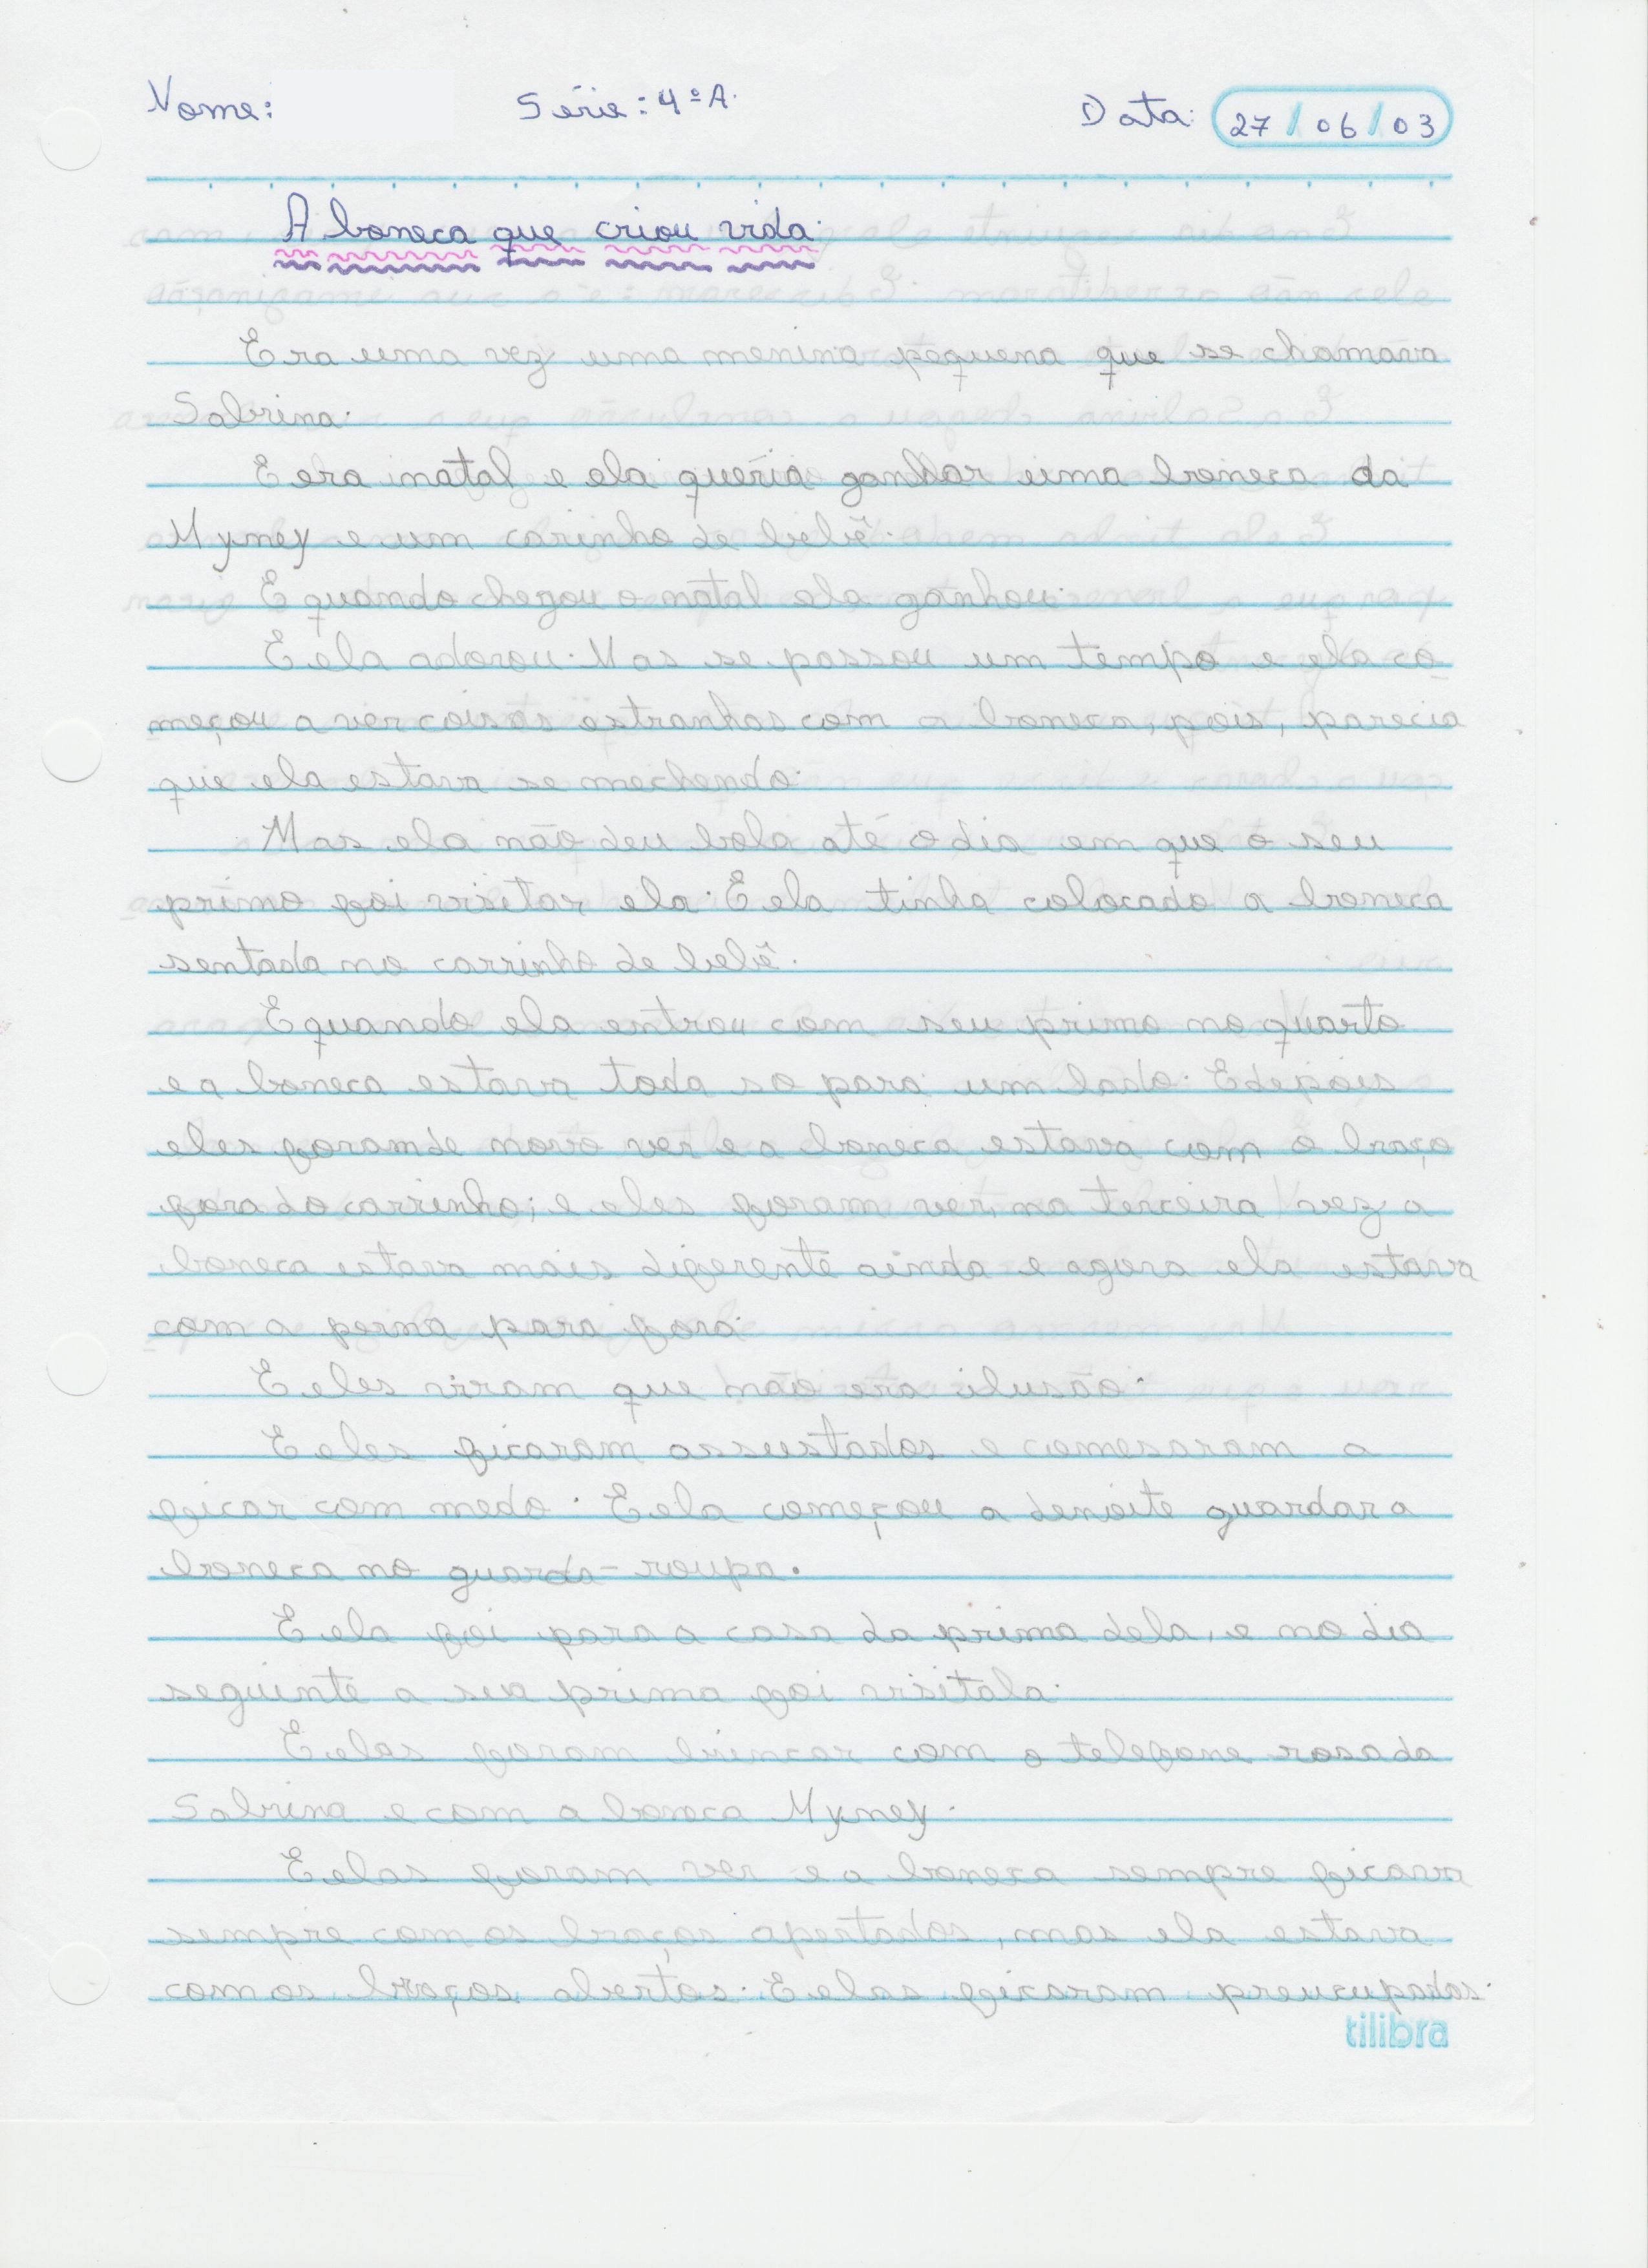 Nome: Série: 4ºA. Data: 27/06/03
A boneca que criou vida.
Era uma vez uma menina pequena que se chamava
Sabrina.
E era natal e ela queria ganhar uma boneca da
Myney e um carinho de bebê.
E quando chegou o natal ela ganhou.
E ela adorou. Mas se passou um tempo e ela co
meçou a ver coisas estranhas com a boneca, pois, parecia
que ela estava se mechendo.
Mas ela não deu bola até o dia em que o seu
primo foi visitar ela. E ela tinha colocado a boneca
sentada no carrinho de bebê.
E quando ela entrou com seu primo no quarto
e a boneca estava toda so para um lado. E depois
eles foram de novo ver e a boneca estava com o braço
fora do carrinho; e eles foram ver, na terceira vez a
boneca estava mais diferente ainda e agora ela estava
com a perna para fora.
E eles viram que não era ilusão.
E eles ficaram assustados e comesaram a
ficar com medo. E ela começou a denoite guardar a
boneca no guarda-roupa.
E ela foi para a casa da prima dela, e no dia
seguinte a sua prima foi visitala.
E elas foram brincar com o telefone rosa da
Sabrina e com a boneca Myney.
E elas foram ver e a boneca sempre ficava
sempre com os braços apertados, mas ela estava
com os braços abertos. E elas ficaram preucupadas.
tilibra